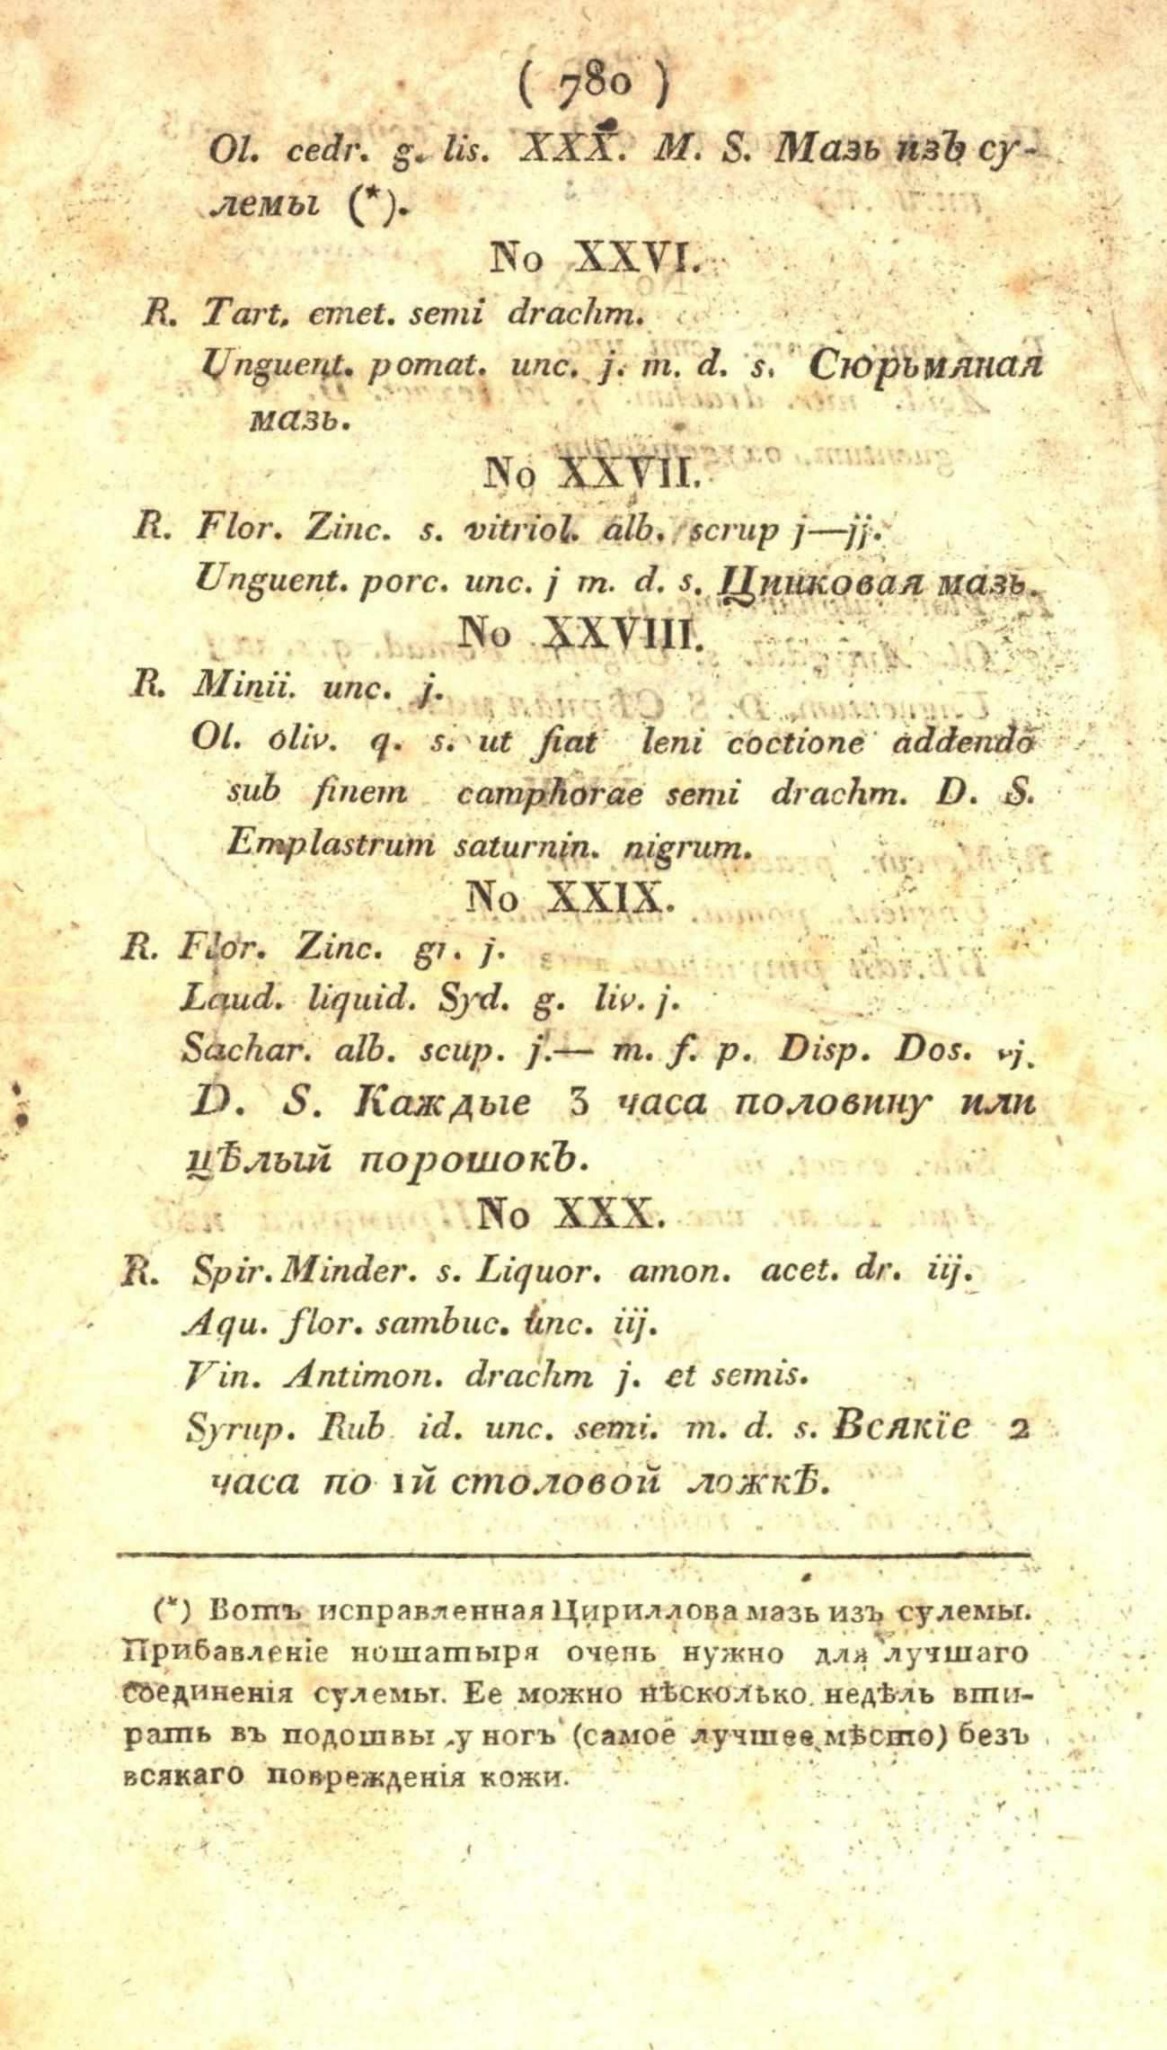 ( 780 )
Ol. cedr. g. lis. XXX. M. S. Мазь изъ су-
лемы (*).
No XXVI.
R. Tart. emet. semi drachm.
Unguent. pomat. unc. j. m. d. s. Сюрьмяная
мазь.
No XXVII.
R. Flor. Zinc. s. vitriol. alb. scrup j—jj.
Unguent. porc. unc. j m. d. s. Цинковая мазь.
No XXVIII.
R. Minii. unc. j.
Ol. oliv. q. s. ut fiat leni coctione addendo
sub finem camphorae semi drachm. D. S.
Emplastrum saturnin. nigrum.
No XXIX.
R. Flor. Zinc. gr. j.
Laud. liquid. Syd. g. liv. j.
Sachar. alb. scup. j.— m. f. p. Disp. Dos. vj.
D. S. Каждые 3 часа половину или
цѣлый порошокъ.
No XXX.
R. Spir. Minder. s. Liquor. amon. acet. dr. iij.
Aqu. flor. sambuc. unc. iij.
Vin. Antimon. drachm j. et semis.
Syrup. Rub id. unc. semi. m. d. s. Всякіе 2
часа по 1й столовой ложкѣ.
(*) Вотъ исправленная Цириллова мазь изъ сулемы.
Прибавленіе ношатыря очень нужно для лучшаго
соединенія сулемы. Ее можно нѣсколько недѣль вти-
рать въ подошвы у ногъ (самое лучшее мѣсто) безъ
всякаго поврежденія кожи.